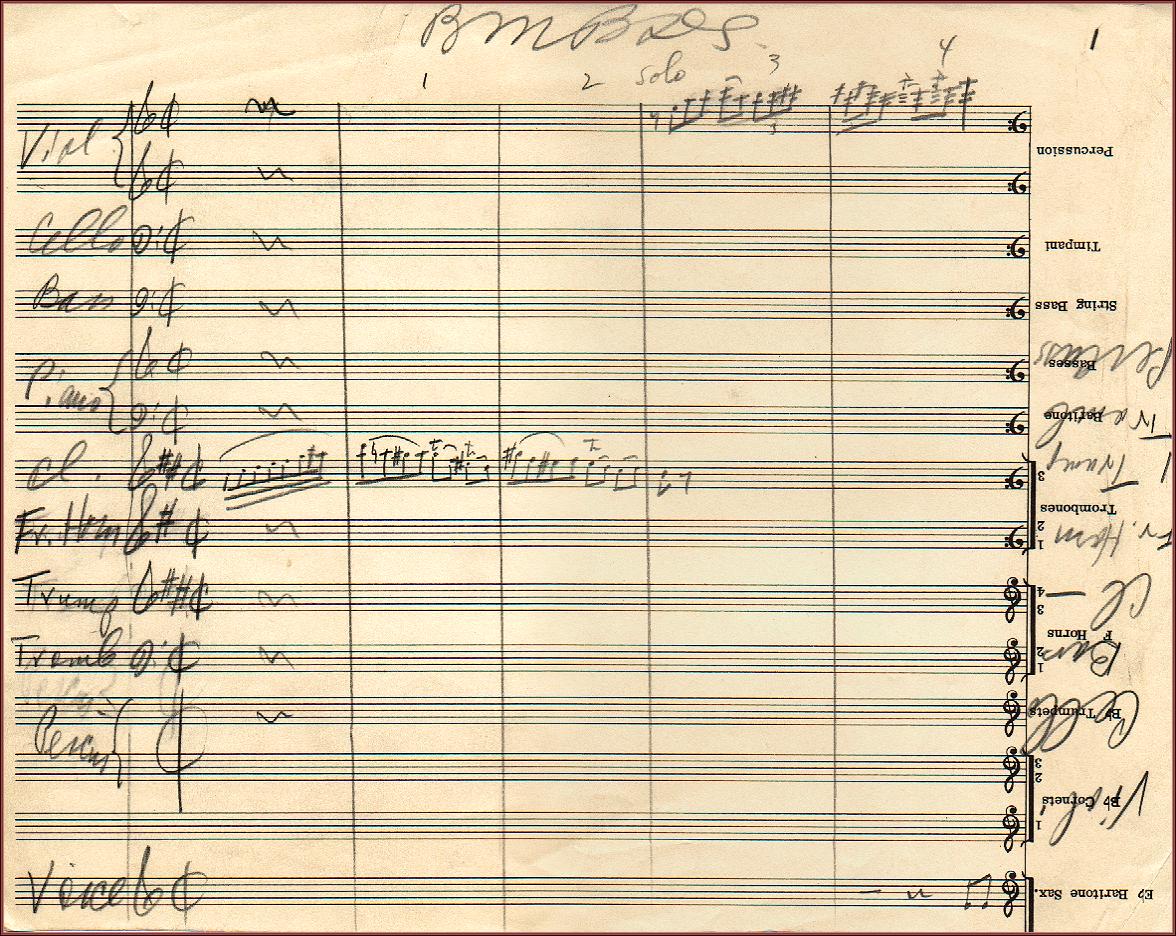 1
1 2 solo 3 4
Viol
Percussion
Cello
Timpani
Bass
String Bass
Percuss
Piano
Basses
Tromb
Baritone
Cl.
Trump
3
Trombones
Fr. Horn
2
1
Fr. Horn
Trump
4
3
Cl
F Horns
Tromb
2
1
Bass
Percus
B♭ Trumpets
Cello
3
2
B♭ Cornets
Viol
1
Voice
E♭ Baritone Sax.